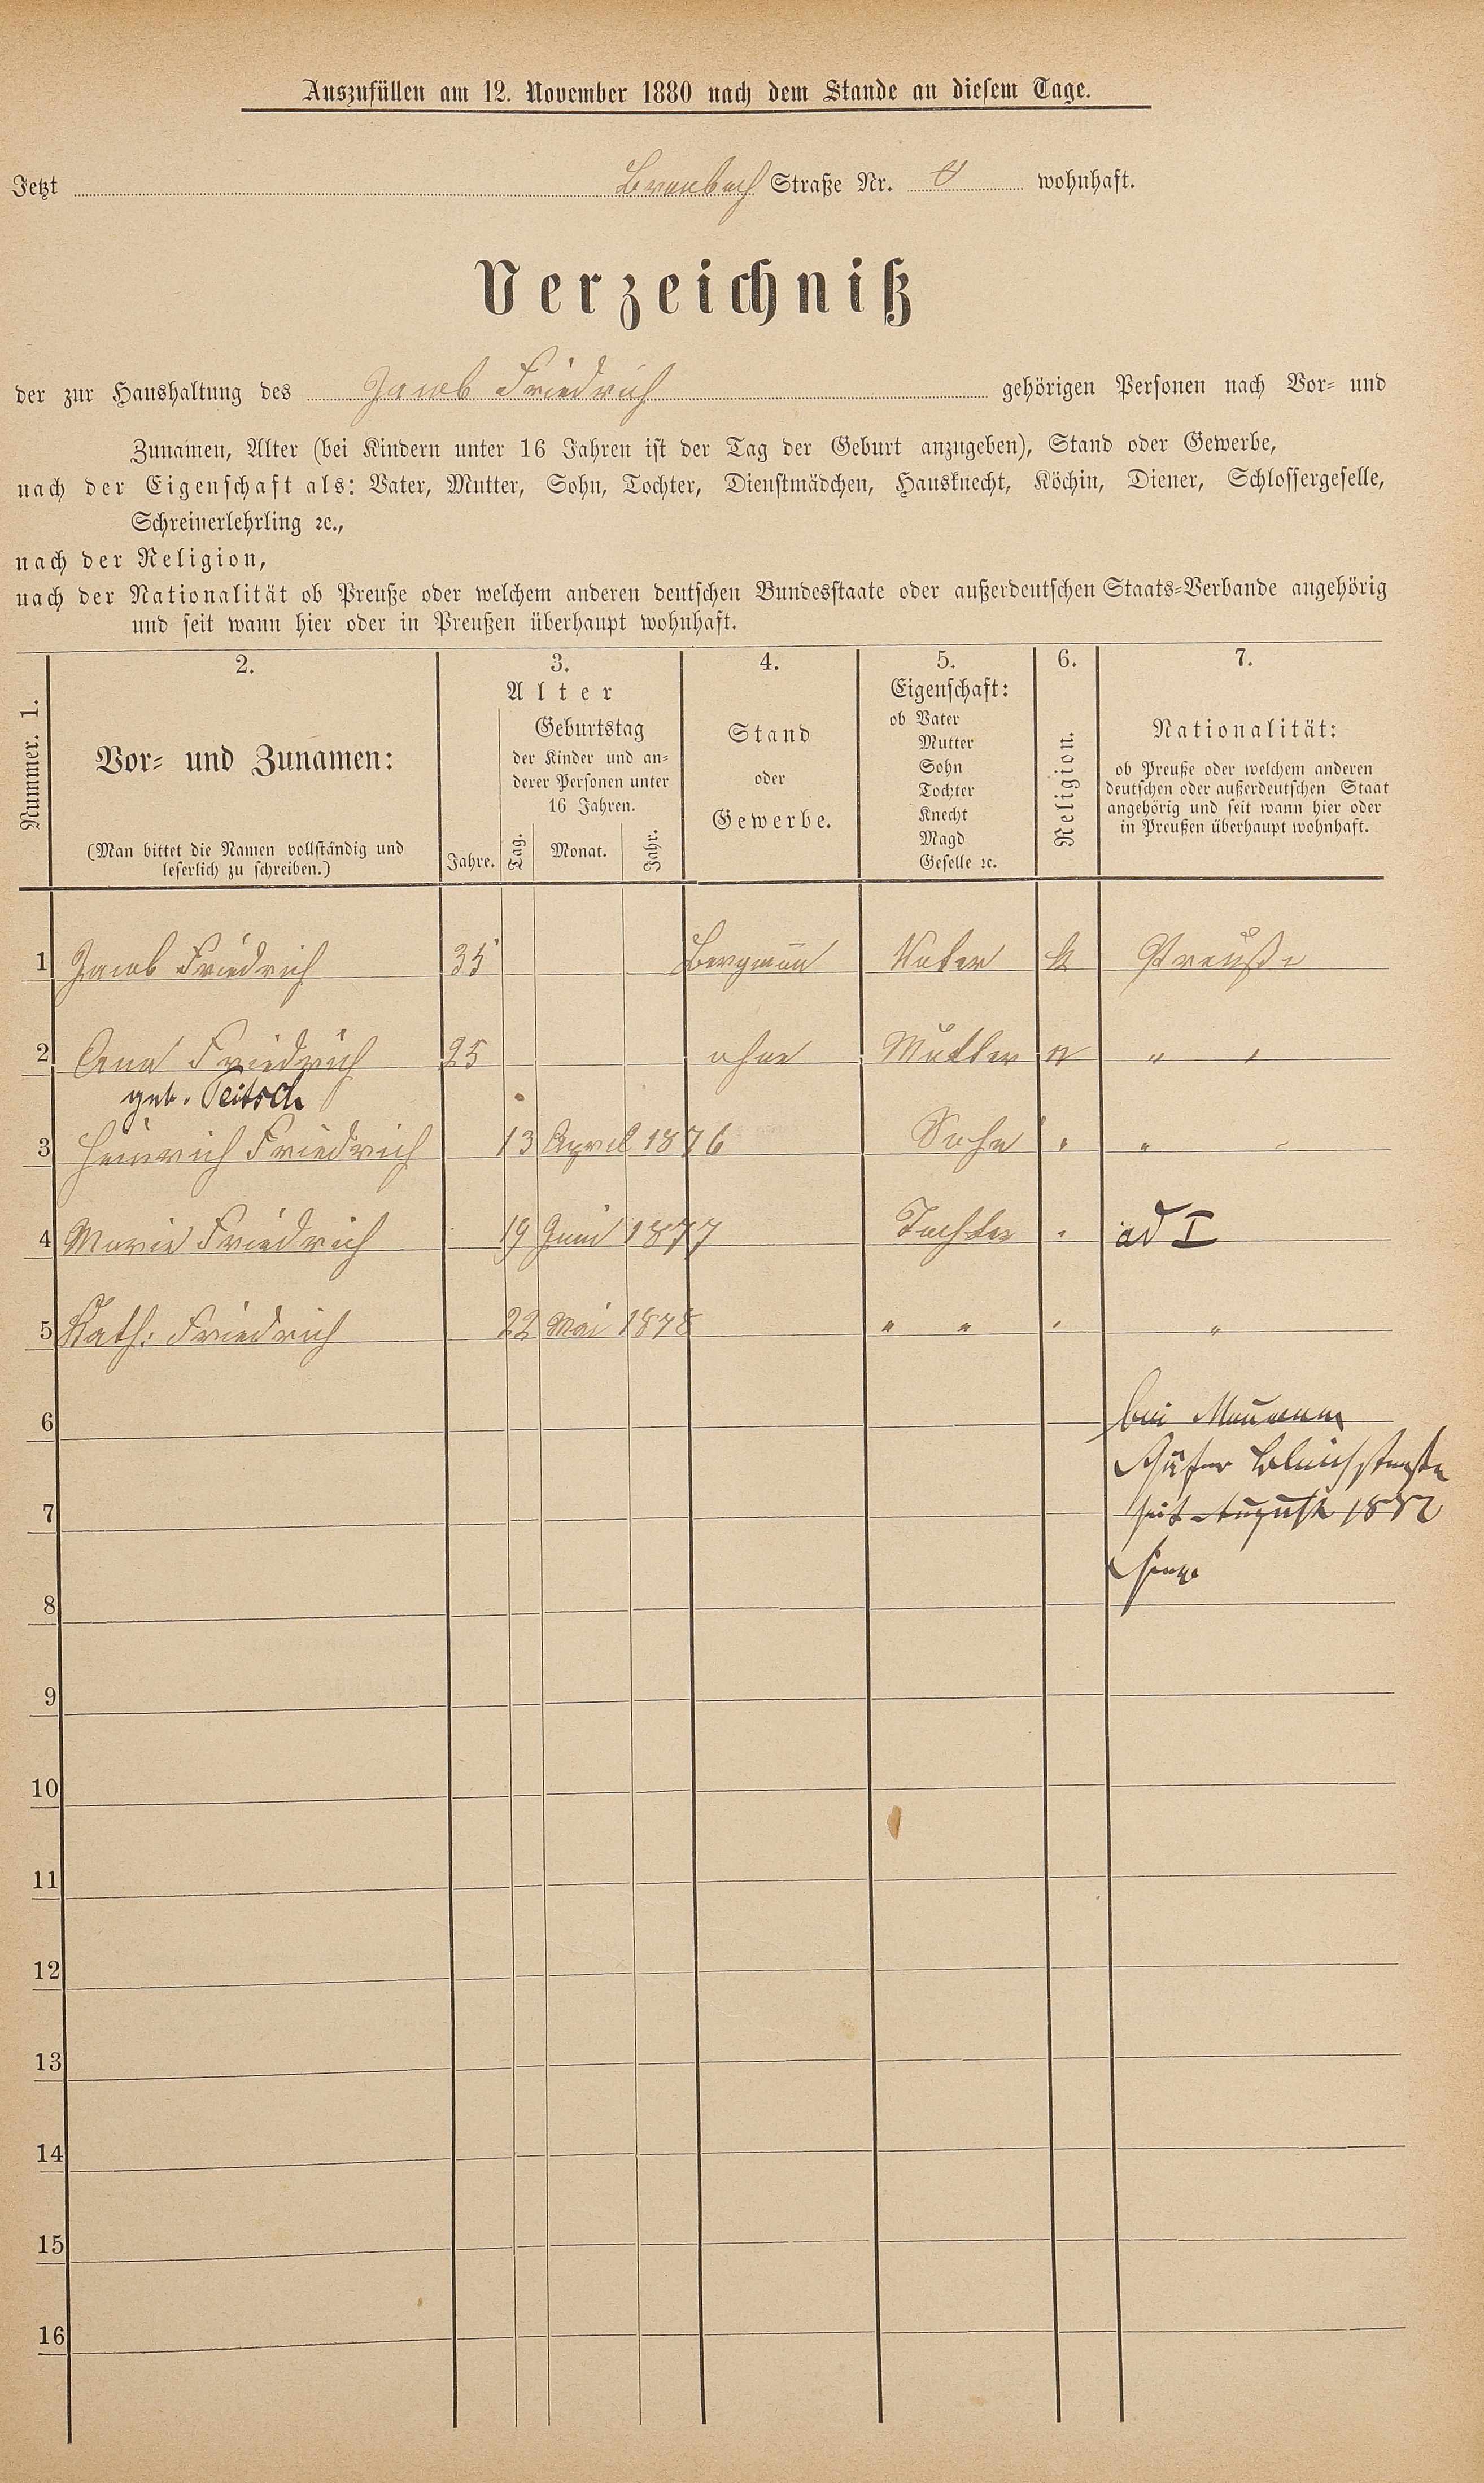 Auszufüllen am 12. November 1880 nach dem Stande an diesem Tage.
Jetzt Straße Nr. wohnhaft.
Verzeichniß
der zur Haushaltung des Jacob Friedrich gehörigen Personen nach Vor- und
Zunamen, Alter (bei Kindern unter 16 Jahren ist der Tag der Geburt anzugeben), Stand oder Gewerbe,
nach der Eigenschaft als: Vater, Mutter, Sohn, Tochter, Dienstmädchen, Hausknecht, Köchin, Diener, Schlossergeselle,
Schreinerlehrling ꝛc.,
nach der Religion,
nach der Nationalität ob Preuße oder welchem anderen deutschen Bundesstaate oder außerdeutschen Staats-Verbande angehörig
und seit wann hier oder in Preußen überhaupt wohnhaft.
Nummer. 1.
2.
Vor- und Zunamen:
(Man bittet die Namen vollständig und
leserlich zu schreiben.)
3.
Alter
Jahre.
Geburtstag
der Kinder und an-
derer Personen unter
16 Jahren.
Tag. Monat. Jahr.
4.
Stand
oder
Gewerbe.
5.
Eigenschaft:
ob Vater
Mutter
Sohn
Tochter
Knecht
Magd
Geselle ꝛc.
6.
Religion.
7.
Nationalität:
ob Preuße oder welchem anderen
deutschen oder außerdeutschen Staat
angehörig und seit wann hier oder
in Preußen überhaupt wohnhaft.
1 Jacob Friedrich 35 Bergman Vater k Preuße
2 Ana Friedrich 25 ohne Mutter " "
geb. Teitsch
3 Heinrich Friedrich 13 April 1876 Sohn " " "
4 Marie Friedrich 19 Juni 1877 Tochter " ad I
5 Kath. Friedrich 22 Mai 1878 " " " "
6 bei
7 seit August 1882
8
9
10
11
12
13
14
15
16